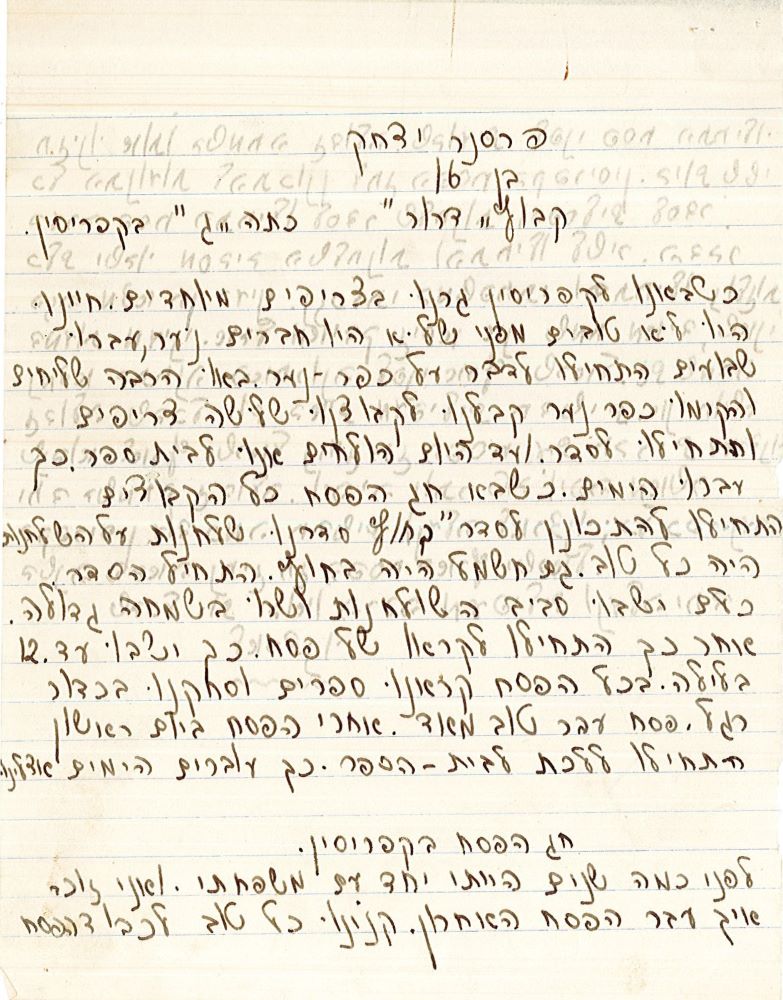 פרסנר יצחק
בן 16
קבוץ "דרור" כתה "ג" בקפריסין.
כשבאנו לקפריסין גרנו בצריפים מיוחדים. חיינו
היו לא טובים מפני שלא היו חברים נוער, עברו
שבועים התחילו לדבר על כפר-נוער. באו הרבה שליחים
והקימו כפר נוער קבלנו לקבוצנו שלשה צריפים
והתחילו לסדר. ועד היום הולחים אנו לבית ספר. כך
עברו הימים. כשבא חג הפסח כל הקבוצים
התחילו להתכונן לסדר סדרנו שלחנות על השלחנות
היה כל טוב. גם חשמל היה בחוץ. התחיל הסדר.
כולם ישבו סביב השולחנות ושרו בשמחה גדולה.
אוחר כך התחילו לקראו של פסח. כך ישבו עד 12.
בלילה. בכל הפסח קראנו ספרים וסחקנו בכדור
רגל. פסח עבר טוב מאוד. אוחרי הפסח ביום ראשון
התחילו ללכת לבית-הספר. כך עוברים הימים אצלינו.
חג הפסח בקפריסין.
לפני כמה שנים הייתי יחד עם משפחתי. ואני זוכר
איך עבר הפסח האוחרון. קנינו כל טוב לכבוד הפסח